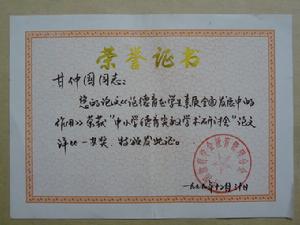 荣誉证书
甘仲国同志:
您的论文《论德育在学生素质全面发展中的
作用》荣获"中小学德育实践学术研讨会"论文
评比一等奖,特发此证。
一九九九年十二月二十日